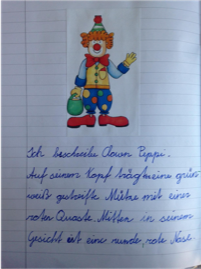 Ich beschreibe Clown Peppi.
Auf seinem Kopf trägt eine grün
weiß gestreifte Mütze mit einer
roten Quaste. Mitten in seinem
Gesicht ist eine runde, rote Nase.